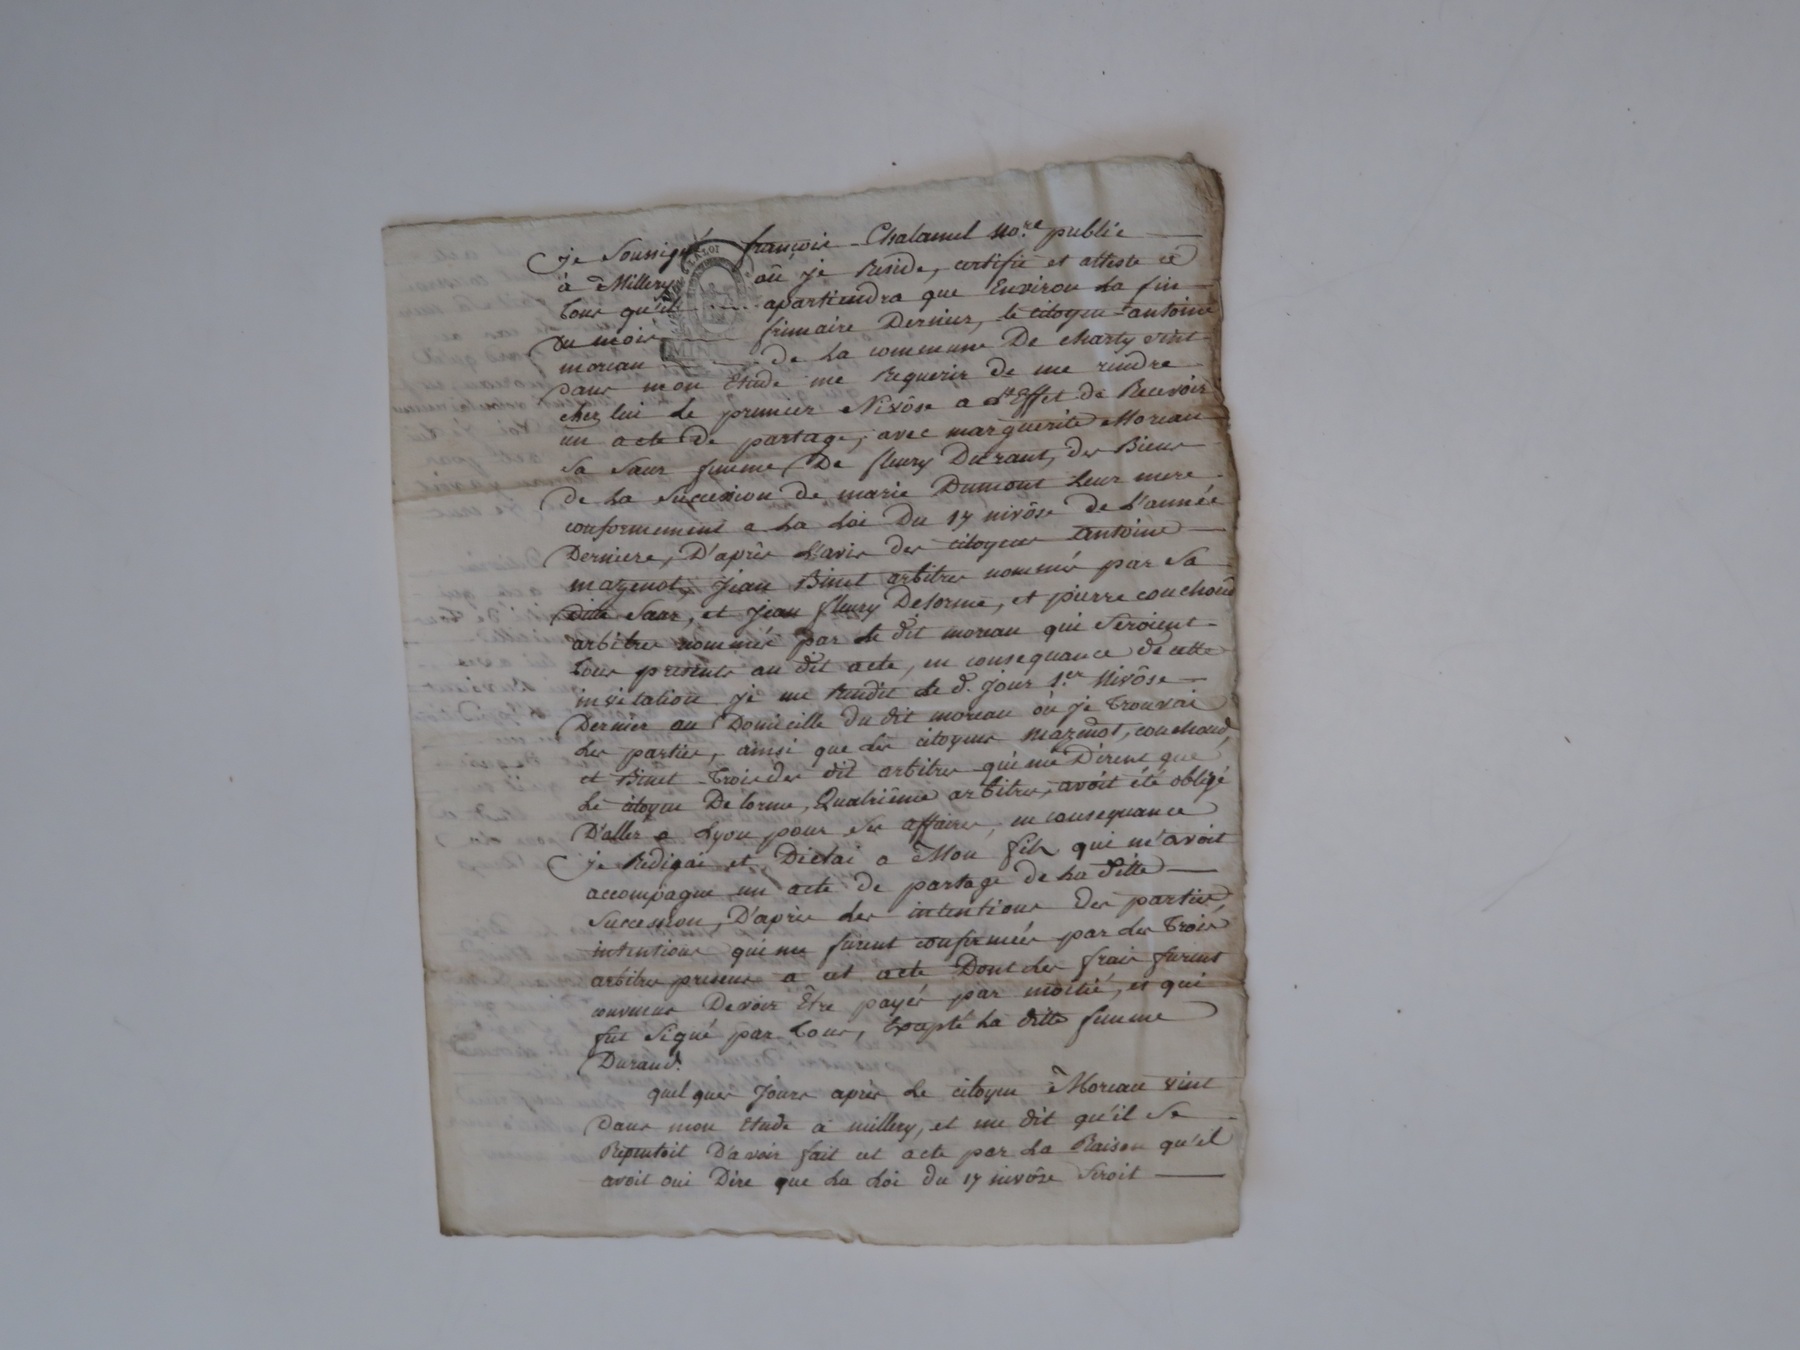 je soussigné françois Chalamel no.re public
à Millery où je Reside, certifie et atteste à
Tous qu'il apartiendra que Environ La fin
du mois frimaire Dernier, le citoyen antoine
moreau de La commune De charly vint
dans mon Etude me Requerir de me rendre
chez lui Le premier Nivôse a L'Effet de Recevoir
un acte de partage, avec marguerite Moreau
Sa Sœur femme De fleury Durant, des Biens
de La succession de marie Dumont Leur mere
conformement a La Loi Du 17 nivôse de L'année
Derniere, D'après L'avis des citoyens antoine
mazenot, Jean Binet arbitres nommés par Sa
ditte Sœur, et Jean fleury Delorme, et pierre couchoud
arbitres nommés par le dit moreau qui Seroient
Tous presents au dit acte, en consequance de cette
invitation je me Rendit Le d. Jour 1.er Nivôse
Dernier au Domicille du dit moreau où je Trouvai
Les parties, ainsi que Les citoyens Mazenot, couchoud,
et Binet Trois des dit arbitres qui me Dirent que
Le citoyen Delorme, Quatriême arbitre, avoit été obligé
D'aller a Lyon pour Ses affaires, en consequance
je Redigai et Dictai a Mon fils qui m'avoit
accompagné un acte de partage de La ditte
Succession, D'après Les intentions Des parties,
intentions qui me furent confirmées par Les Trois
arbitres presens a cet acte Dont Les frais furent
convenus Devoir Être payés par moitié, et qui
fut Signé par Tous, Excepté La ditte femme
Durand.
quelques Jours après Le citoyen Moreau vint
Dans mon Etude à millery, et me dit qu'il Se
Repentoit D'avoir fait cet acte par La Raison qu'il
avoit oui Dire que La Loi du 17 nivôse Seroit